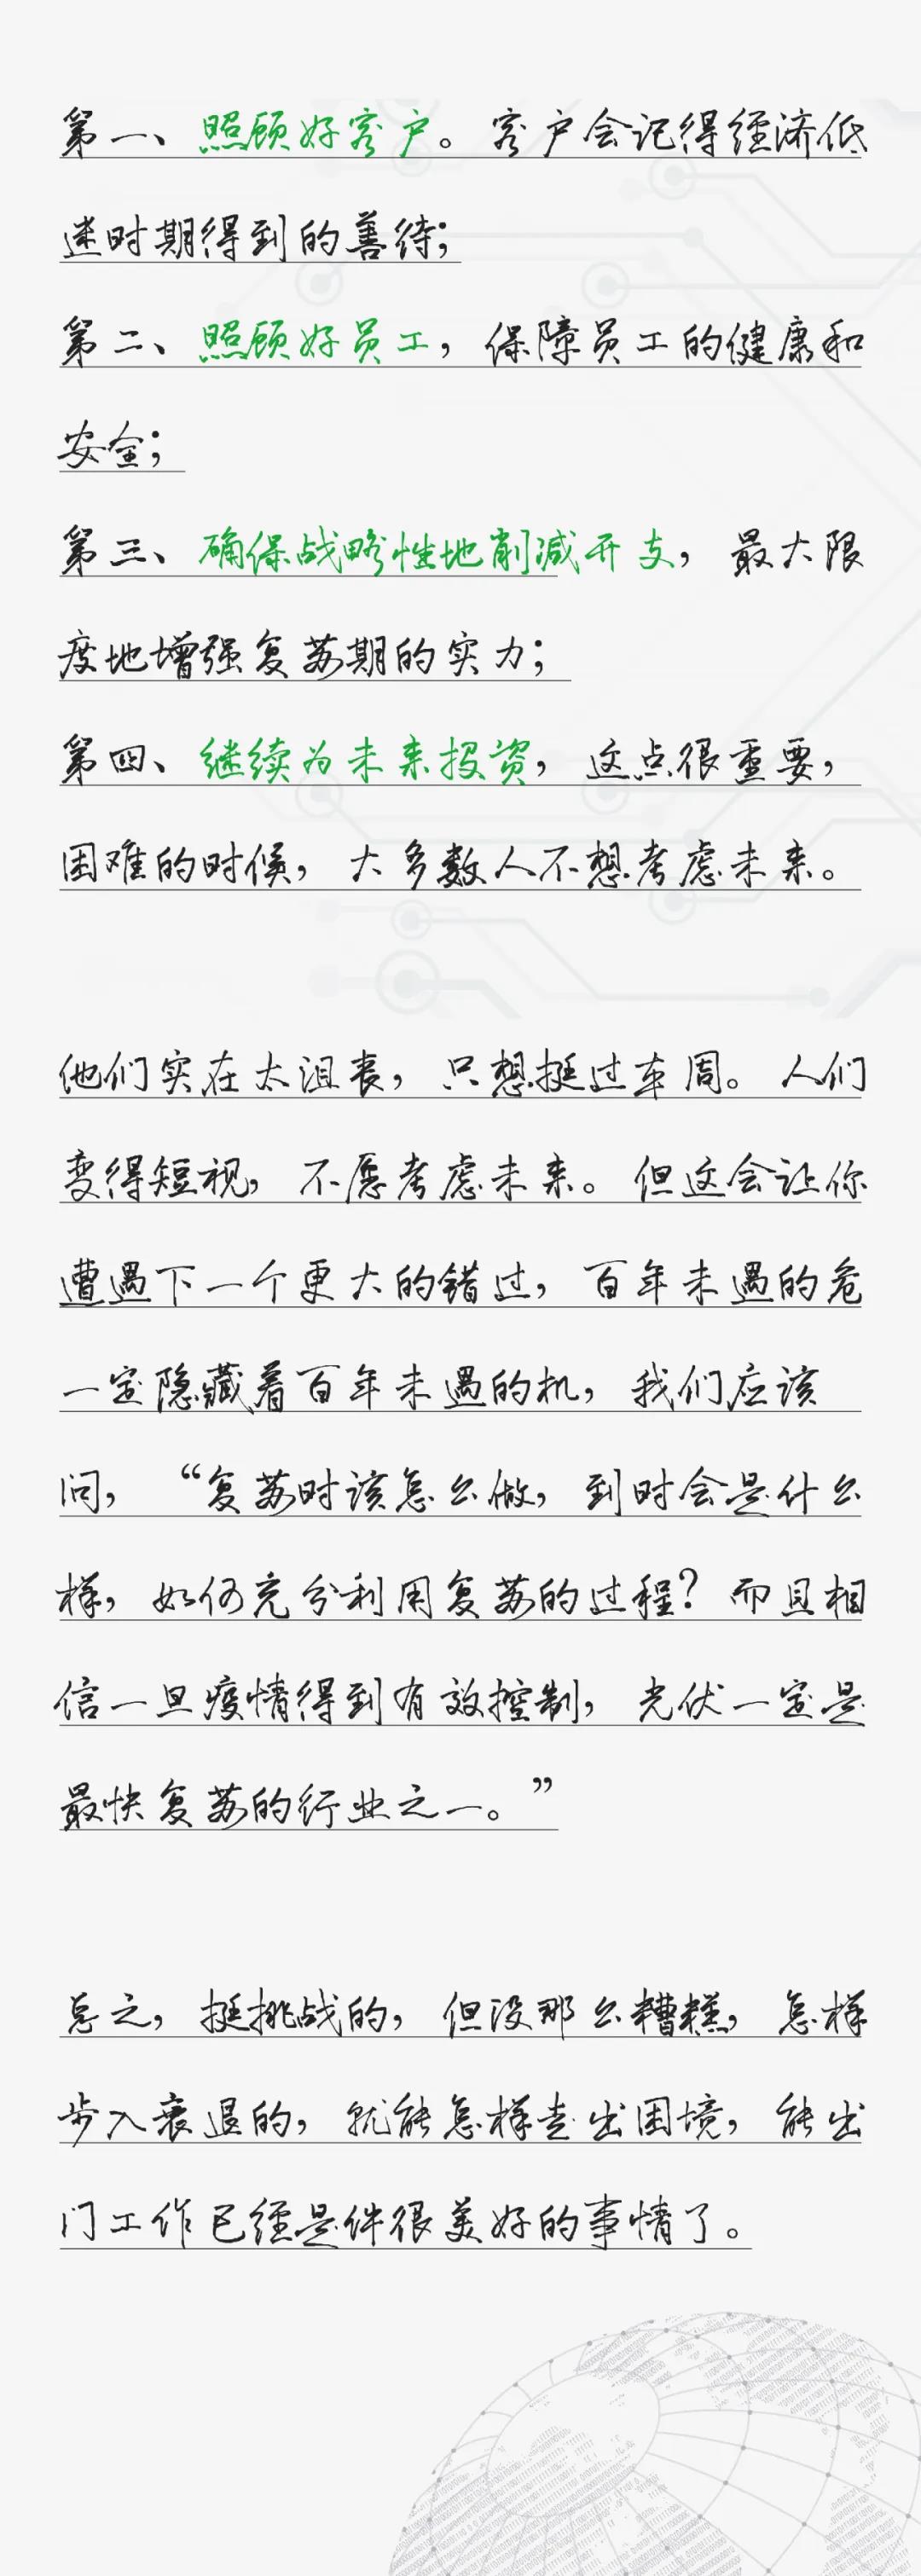 第一、照顾好客户。客户会记得经济低
迷时期得到的善待；
第二、照顾好员工，保障员工的健康和
安全；
第三、确保战略性地削减开支，最大限
度地增强复苏期的实力；
第四、继续为未来投资，这点很重要，
困难的时候，大多数人不想考虑未来。
他们实在太沮丧，只想挺过车周。人们
变得短视，不愿考虑未来。但这会让你
遭遇下一个更大的错过，百年未遇的危
一定隐藏着百年未遇的机，我们应该
问，“复苏时该怎么做，到时会是什么
样，如何充分利用复苏的过程？而且相
信一旦疫情得到有效控制，光伏一定是
最快复苏的行业之一。”
总之，挺挑战的，但没那么糟糕，怎样
步入衰退的，就能怎样走出困境，能出
门工作已经是件很美好的事情了。